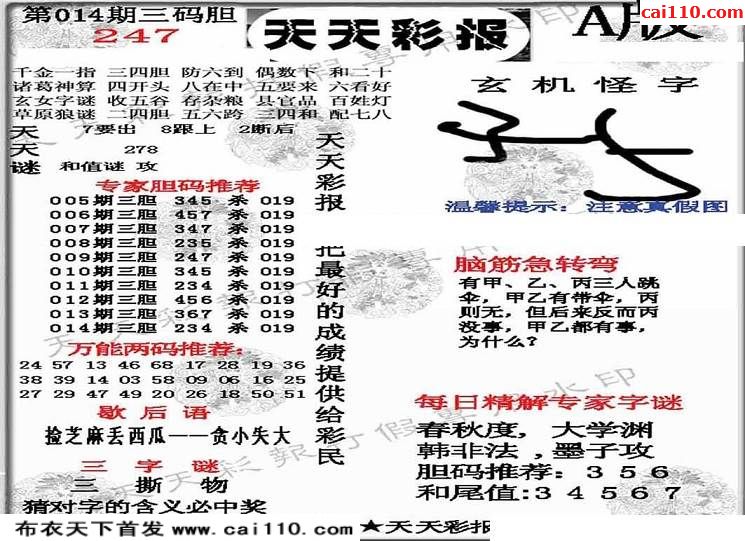 第014期三码胆
247
天天彩报
A版
cai110.com
千金一指 三四胆 防六到 偶数下 和二十
诸葛神算 四开头 八在中 五要来 六看好
玄女字谜 收五谷 存杂粮 县官品 百姓灯
草原狼谜 二四胆 五六跨 三四和 配七八
天天谜
7要出 8跟上 2断后
278
和值谜 攻
专家胆码推荐
005期三胆 345 杀 019
006期三胆 457 杀 019
007期三胆 347 杀 019
008期三胆 235 杀 019
009期三胆 247 杀 019
010期三胆 345 杀 019
011期三胆 234 杀 019
012期三胆 456 杀 019
013期三胆 367 杀 019
014期三胆 234 杀 019
万能两码推荐:
24 57 13 46 68 17 28 19 36
38 39 14 03 58 09 06 16 25
27 29 47 49 20 26 18 50 51
歇后语
捡芝麻丢西瓜——贪小失大
三字谜
三 撕 物
猜对字的含义必中奖
天天彩报
把最好的成绩提供给彩民
玄机怪字
温馨提示: 注意真假图
脑筋急转弯
有甲、乙、丙三人跳
伞，甲乙有带伞，丙
则无，但后来反而丙
没事，甲乙都有事，
为什么?
每日精解专家字谜
春秋度, 大学渊
韩非法 , 墨子攻
胆码推荐: 3 5 6
和尾值: 3 4 5 6 7
布衣天下首发 www.cai110.com
★天天彩报